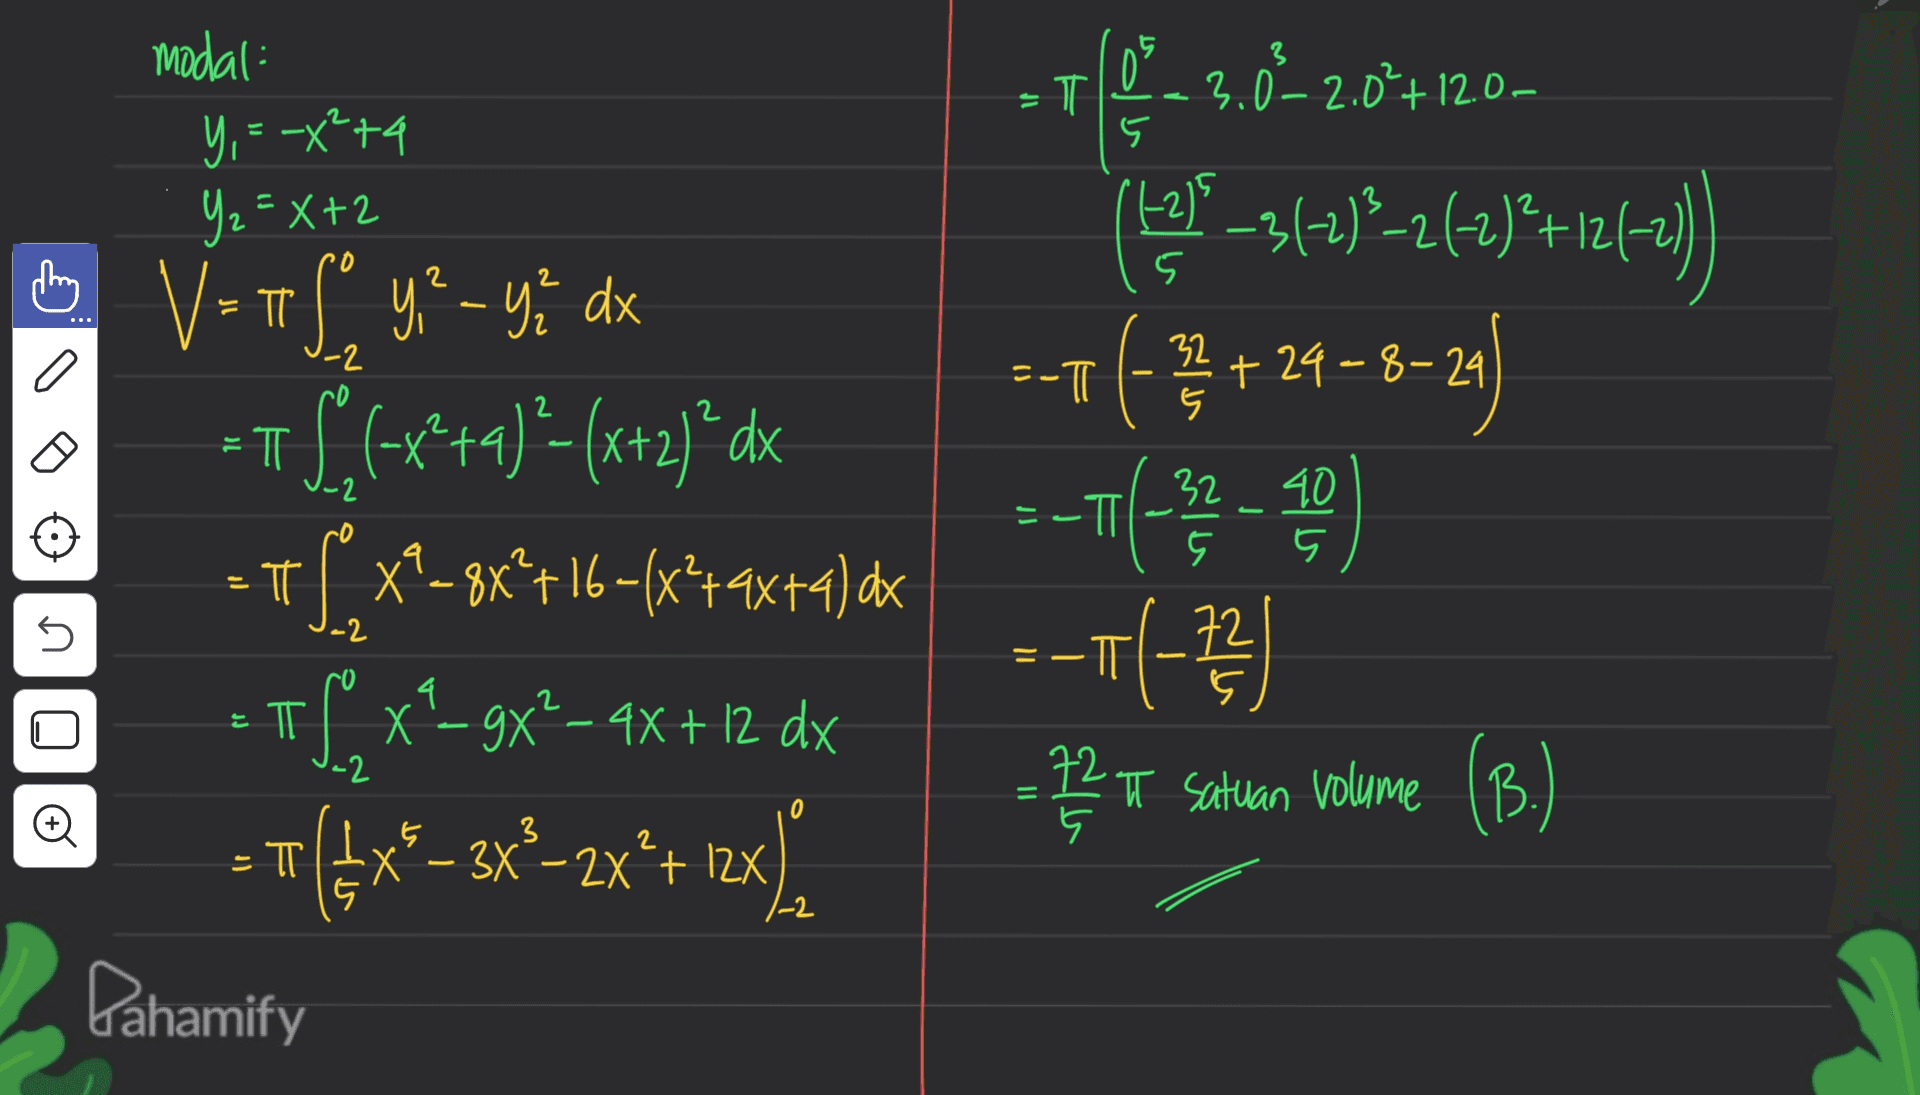 modal:
y₁ = -x²+4
y₂ = x+2
V = π ∫₋₂⁰ y₁² - y₂² dx
= π ∫₋₂⁰ (-x²+4)² - (x+2)² dx
= π ∫₋₂⁰ x⁴ - 8x² + 16 - (x²+4x+4) dx
= π ∫₋₂⁰ x⁴ - 9x² - 4x + 12 dx
= π (1/5 x⁵ - 3x³ - 2x² + 12x)₋₂⁰
= π (0⁵/5 - 3.0³ - 2.0² + 12.0 -
((-2)⁵/5 - 3(-2)³ - 2(-2)² + 12(-2)))
= -π (-32/5 + 24 - 8 - 24)
= -π (-32/5 - 40/5)
= -π (-72/5)
= 72/5 π satuan volume (B.)
Pahamify